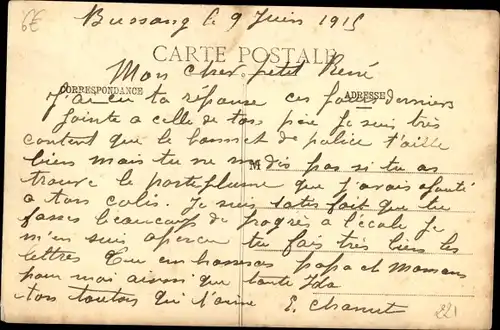 6E
Bussang le 9 Juin 1915
CARTE POSTALE
Mon cher petit René
CORRESPONDANCE
ADRESSE
J'ai eu ta réponse ces jours derniers
jointe a celle de ton père Je suis très
content que le bonnet de police t'aille
bien mais tu ne me dis pas si tu as
M
trouvé le porteplume que j'avais ajouté
a ton colis. Je suis satisfait que tu
fasses beaucoup de progrès a l'école Je
m'en suis aperçu tu fais très bien les
lettres Tu embrasseras papa et maman
pour moi ainsi que tante Ida
ton tonton qui t'aime E. Chanut
221